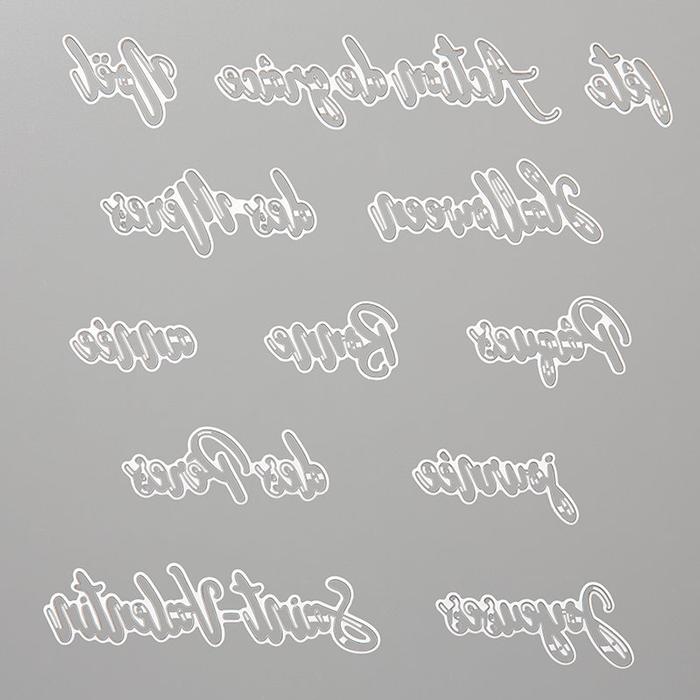 Noël Action de grâce fête
des Mères Halloween
année Bonne Pâques
des Pères journée
Saint-Valentin Joyeuses